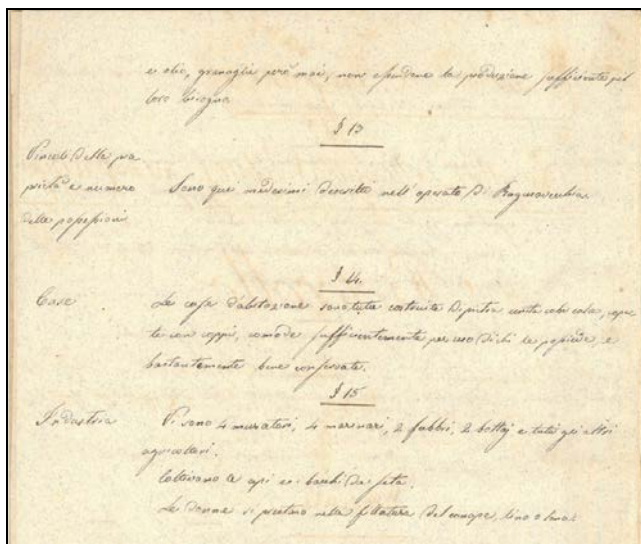 e olio, granaglie però mai, non essendone la produzione sufficiente pel
loro bisogno.
§ 13
Vincoli delle pro
prietà e numero
delle possessioni
Sono quei medesimi descritti nell'operato di Ragusavecchia
§ 14.
Case
Le case d'abitazione sono tutte costruite di pietra unita colla calce, coper
te con coppi, comode sufficientemente per uso di chi le possiede, e
bastantemente bene conservate.
§ 15
Industria
Vi sono 4 muratori, 4 marinari, 2 fabbri, 2 bottaj e tutti gli altri
agricoltori.
Coltivano le api ed i bachi da seta.
Le donne si prestano nella filatura del canape, lino e lana.